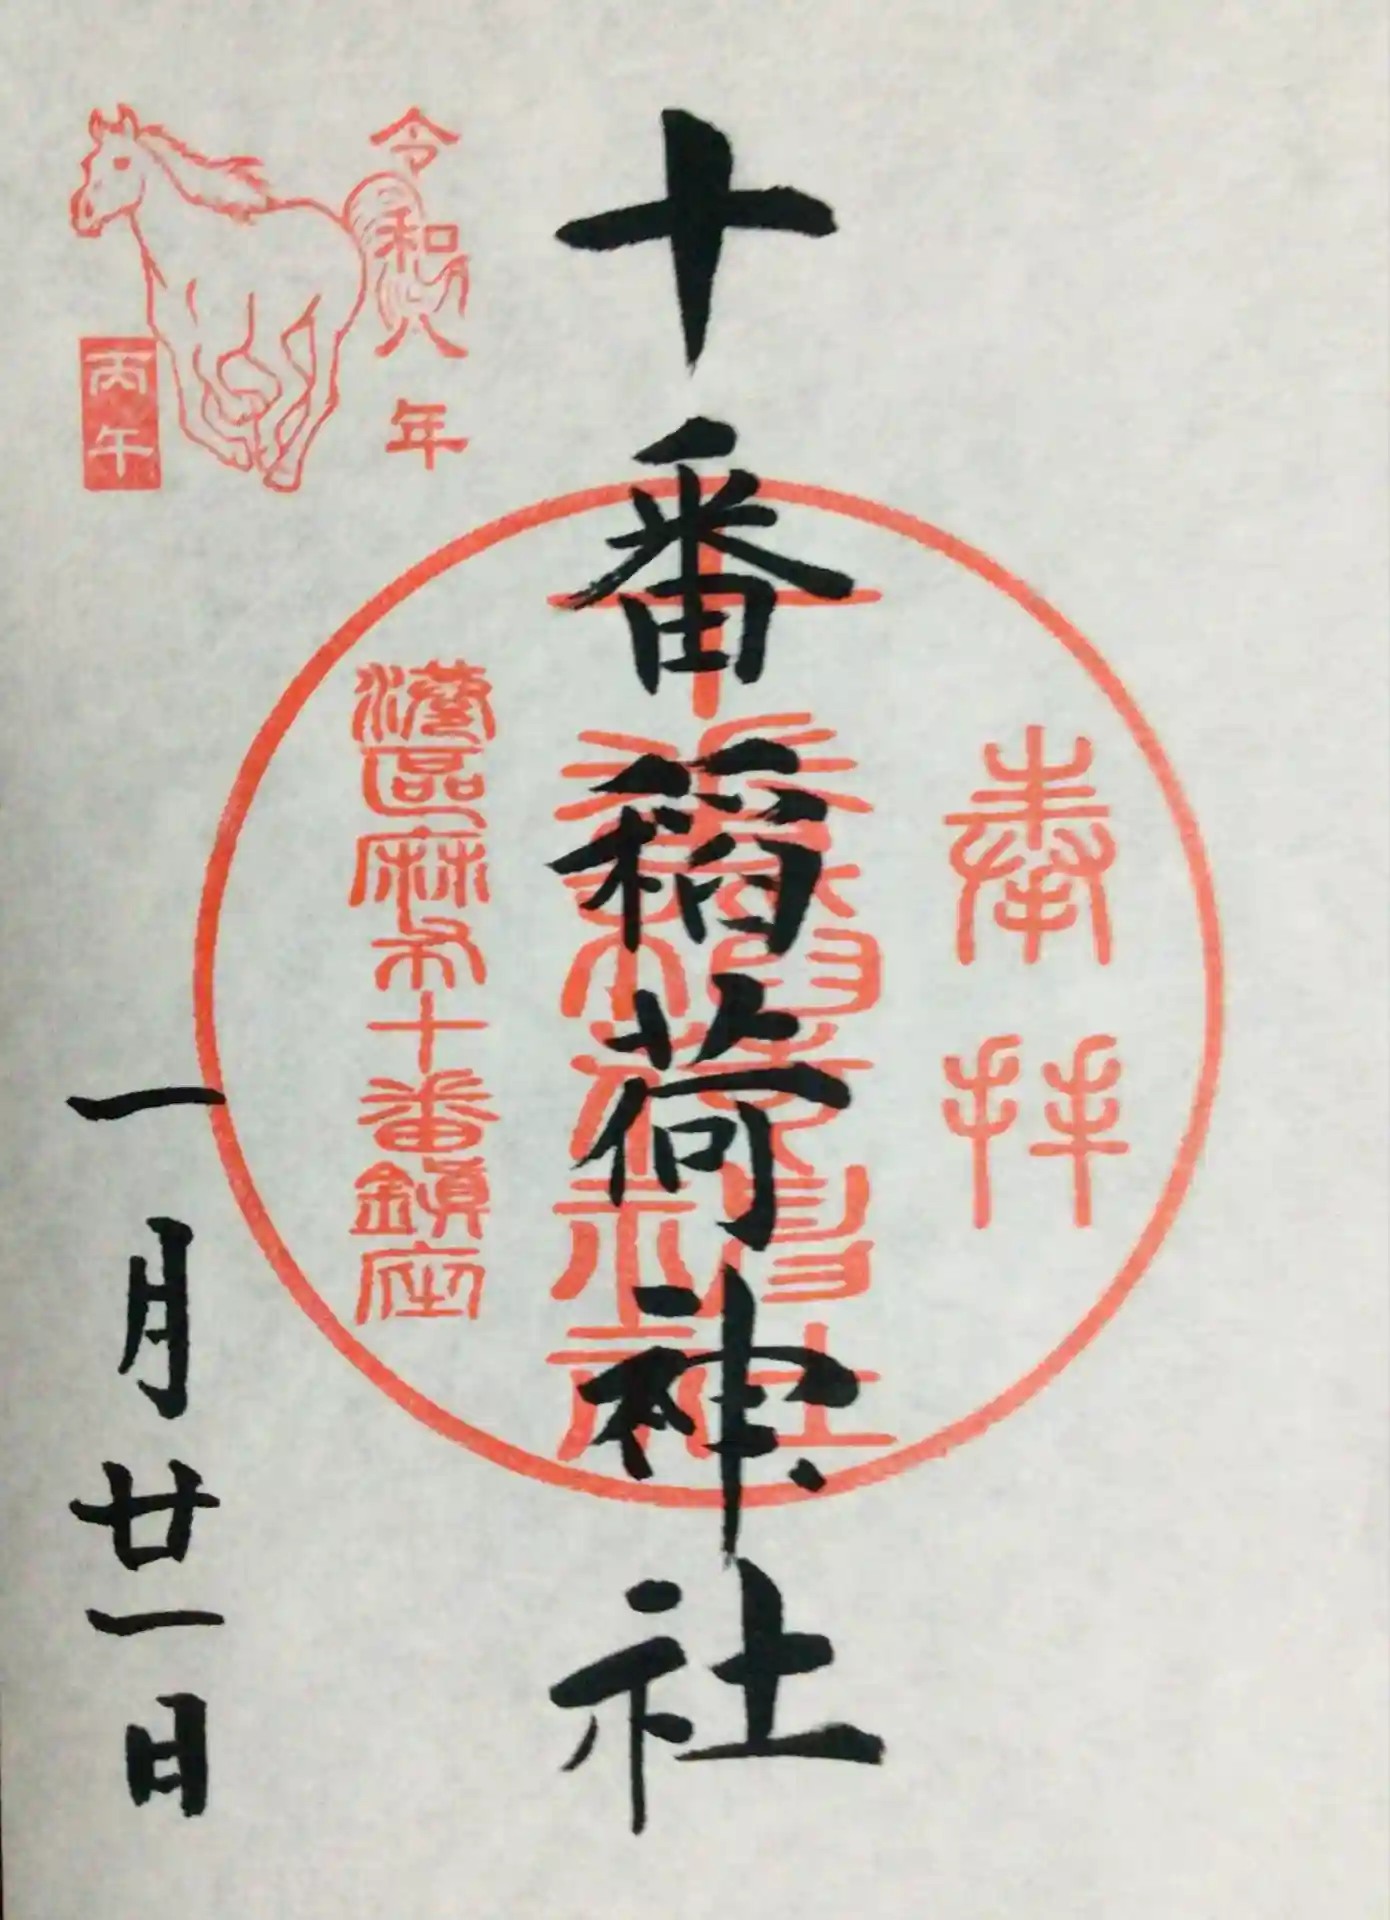 奉拝
十番稲荷神社
十番稲荷神社
港區麻布十番鎮座
令和八年
丙午
一月廿一日